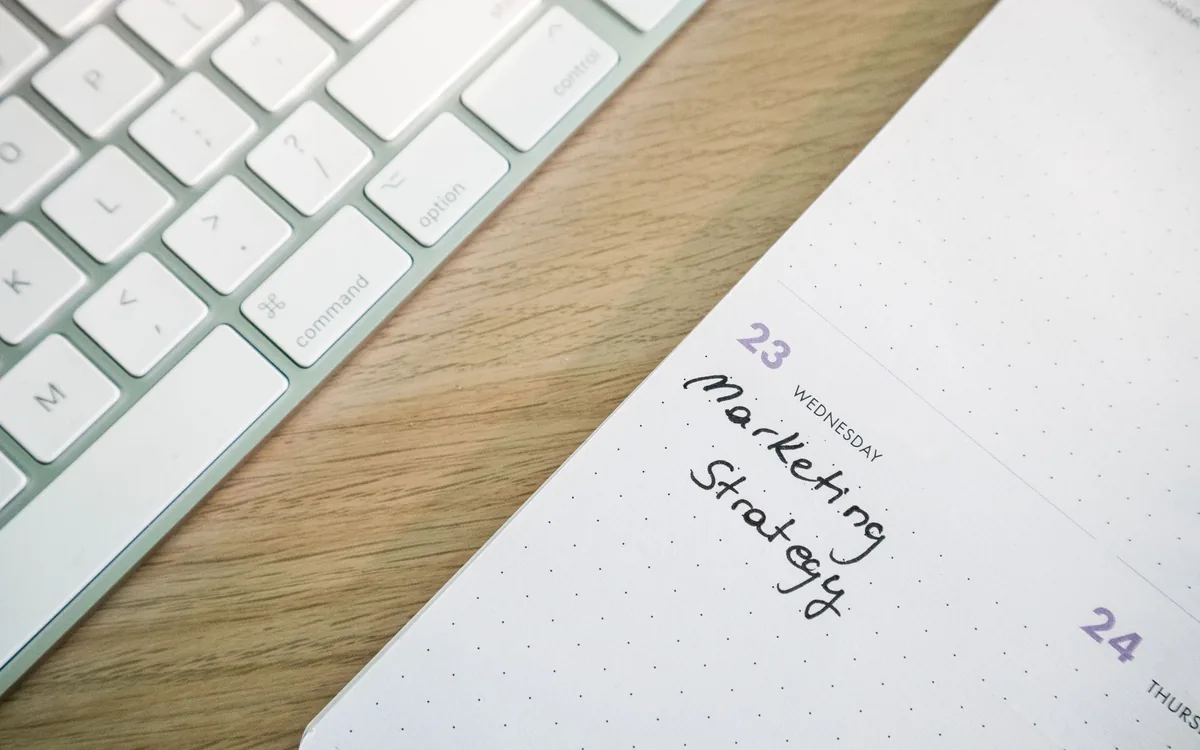 P
O
L
K
M
?
/
>
.
<
,
control
option
⌘
command
23
WEDNESDAY
Marketing
Strategy
24